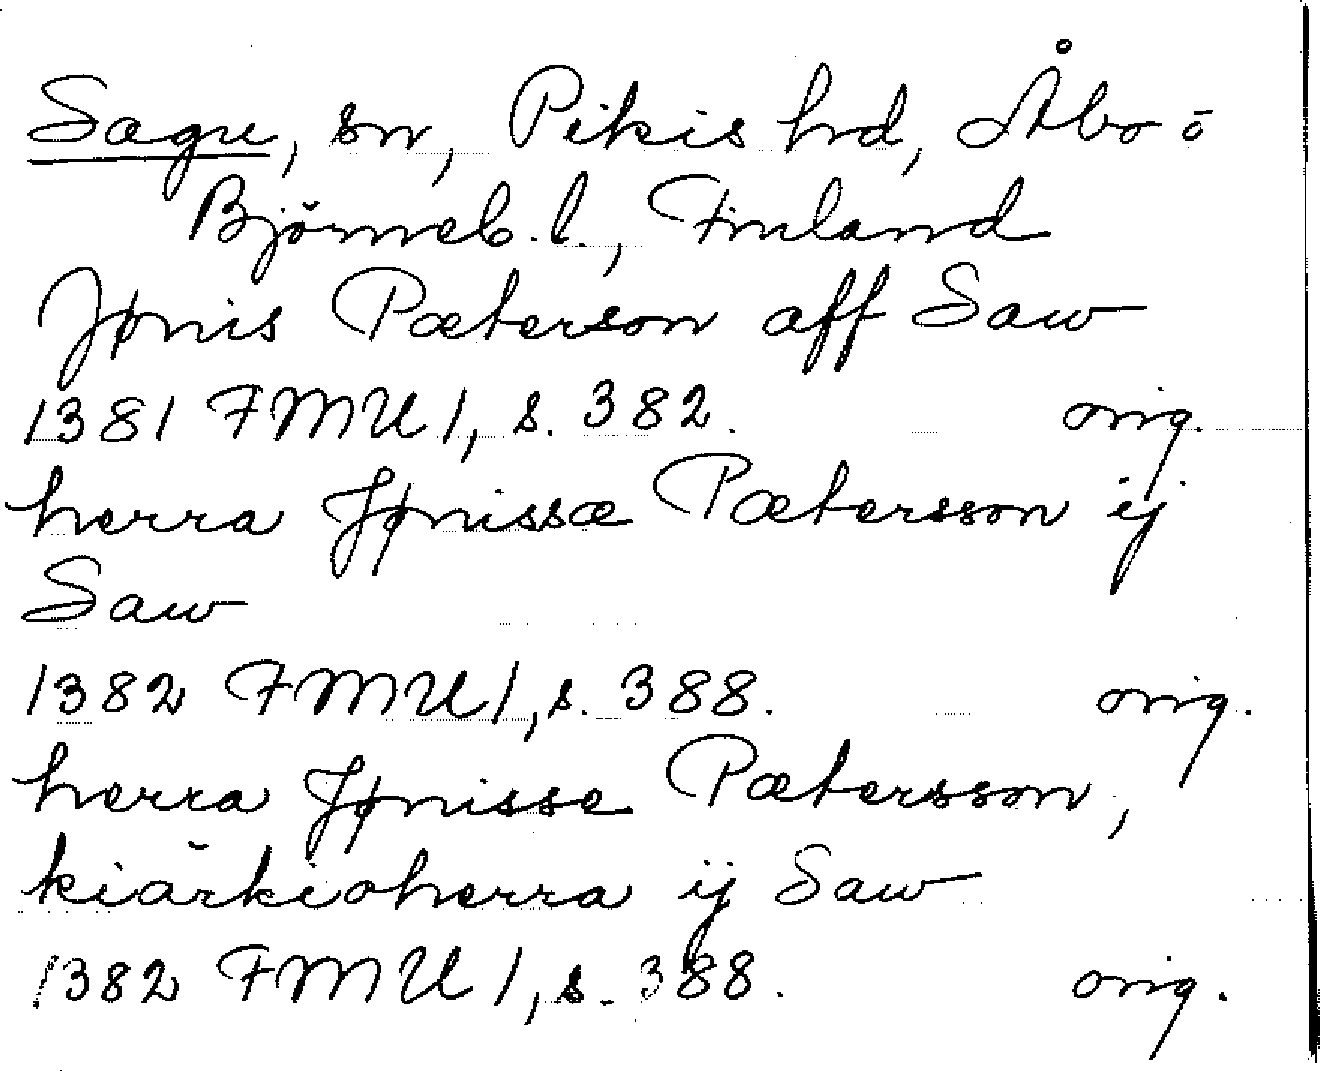 Sagu, sn, Pikis hd, Åbo o
Björneb. l., Finland
Jønis Pæterson aff Saw
1381 FMU 1, s. 382. orig.
herra Jønissæ Pætersson ij
Saw
1382 FMU 1, s. 388. orig.
herra Jønisse Pætersson,
kiärkioherra ij Saw
1382 FMU 1, s. 388. orig.